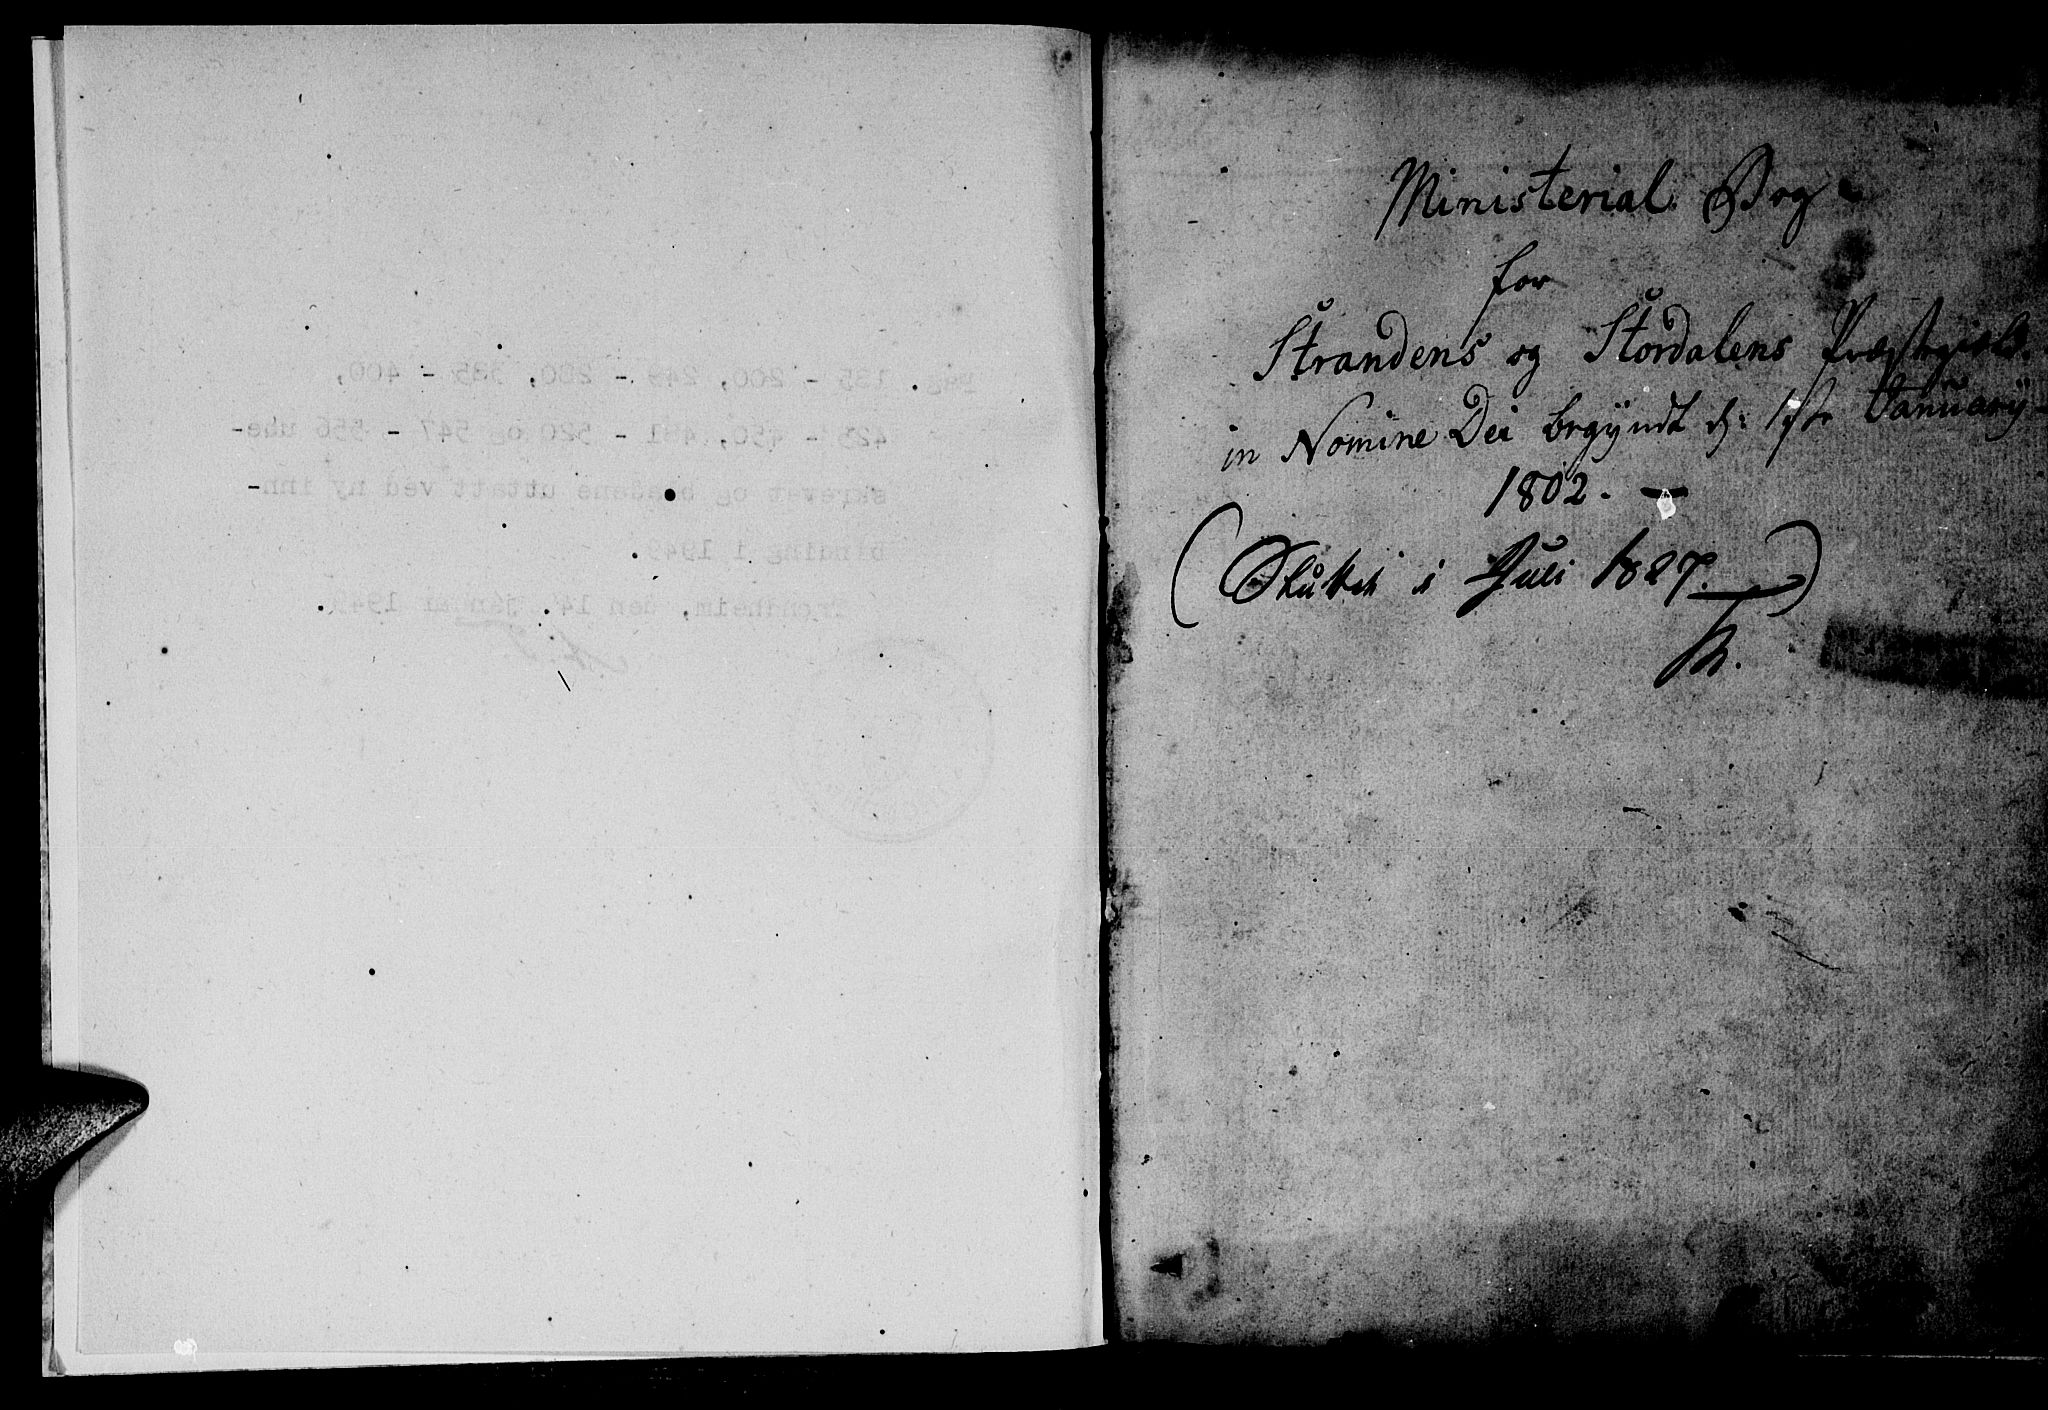 pag. 135 - 200, 249 - 260, 385 - 400,
425 - 450, 481 - 520 og 547 - 556 ube-
skrevet og bladene uttatt ved ny inn-
binding i 1949.
Trondheim, den 14. januar 1949.
Ministerial Bog
for
Strandens og Stordalens Præstegield
in Nomine Dei begÿndt d: 1ste Januarÿ
1802. —
(Sluttet i Juli 1827.)